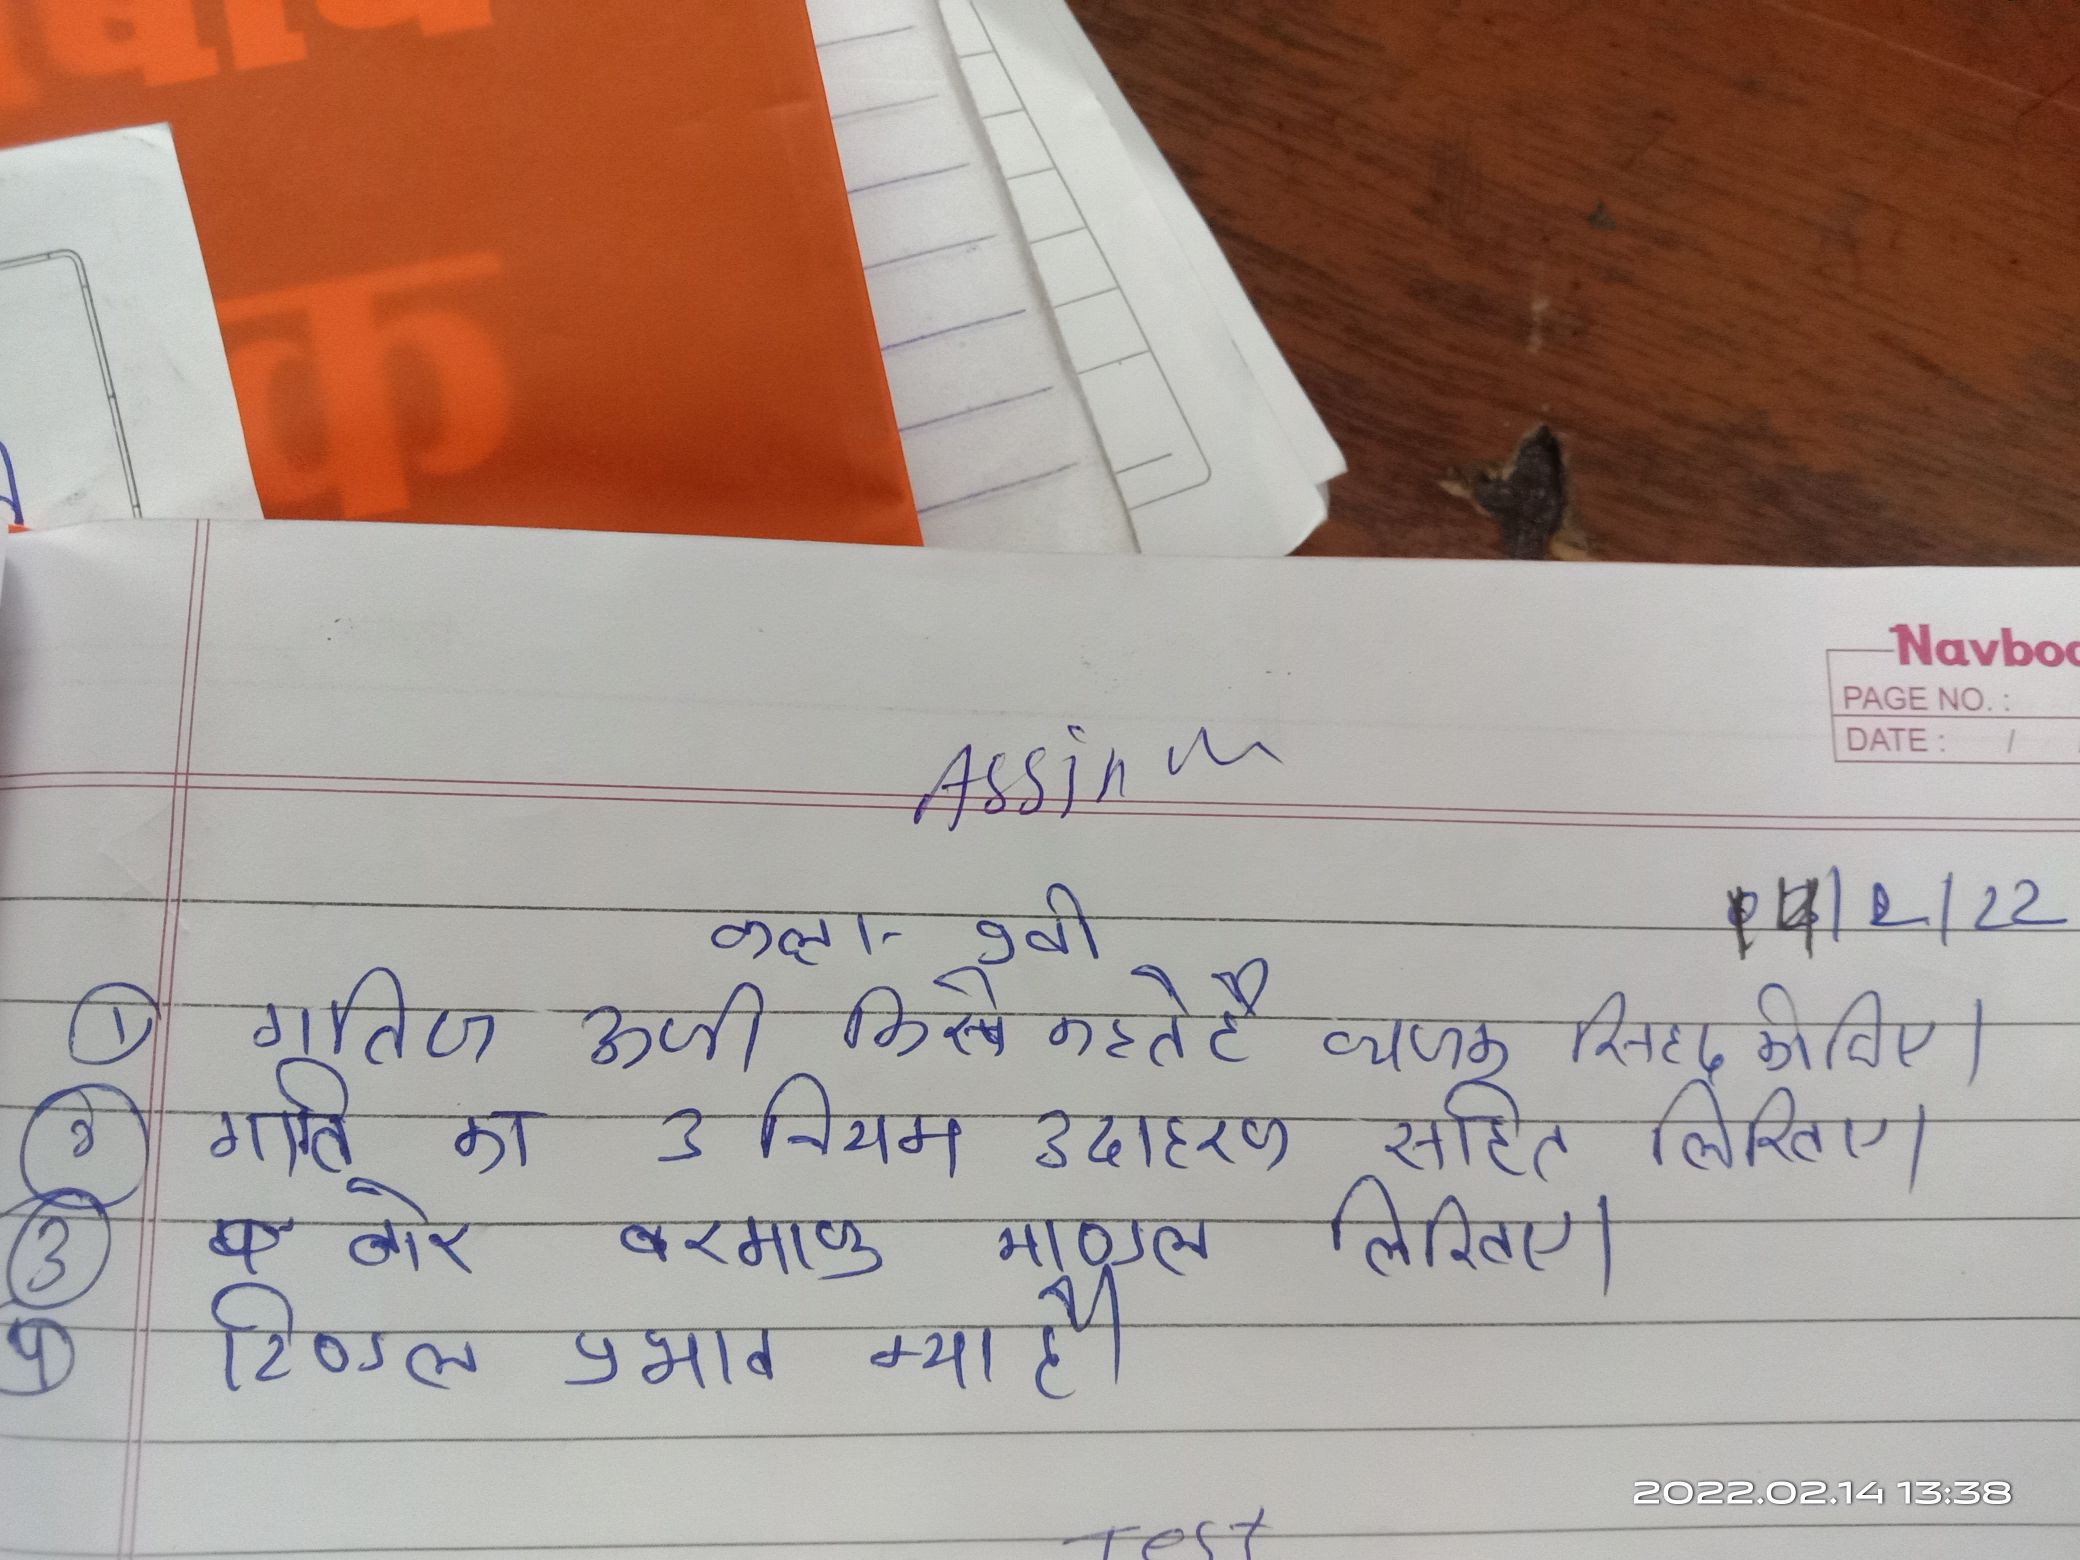 क
Navboo
PAGE NO. :
DATE : / /
Assin
कक्षा- 9वी
/2/22
① गतिज ऊर्जा किसे कहते है व्यजक सिद्द कीजिए।
② गति का 3 नियम उदाहरण सहित लिखिए।
③ बोर परमाणु माण्डल लिखिए।
④ टिण्डल प्रभाव क्या है।
2022.02.14 13:38
Test